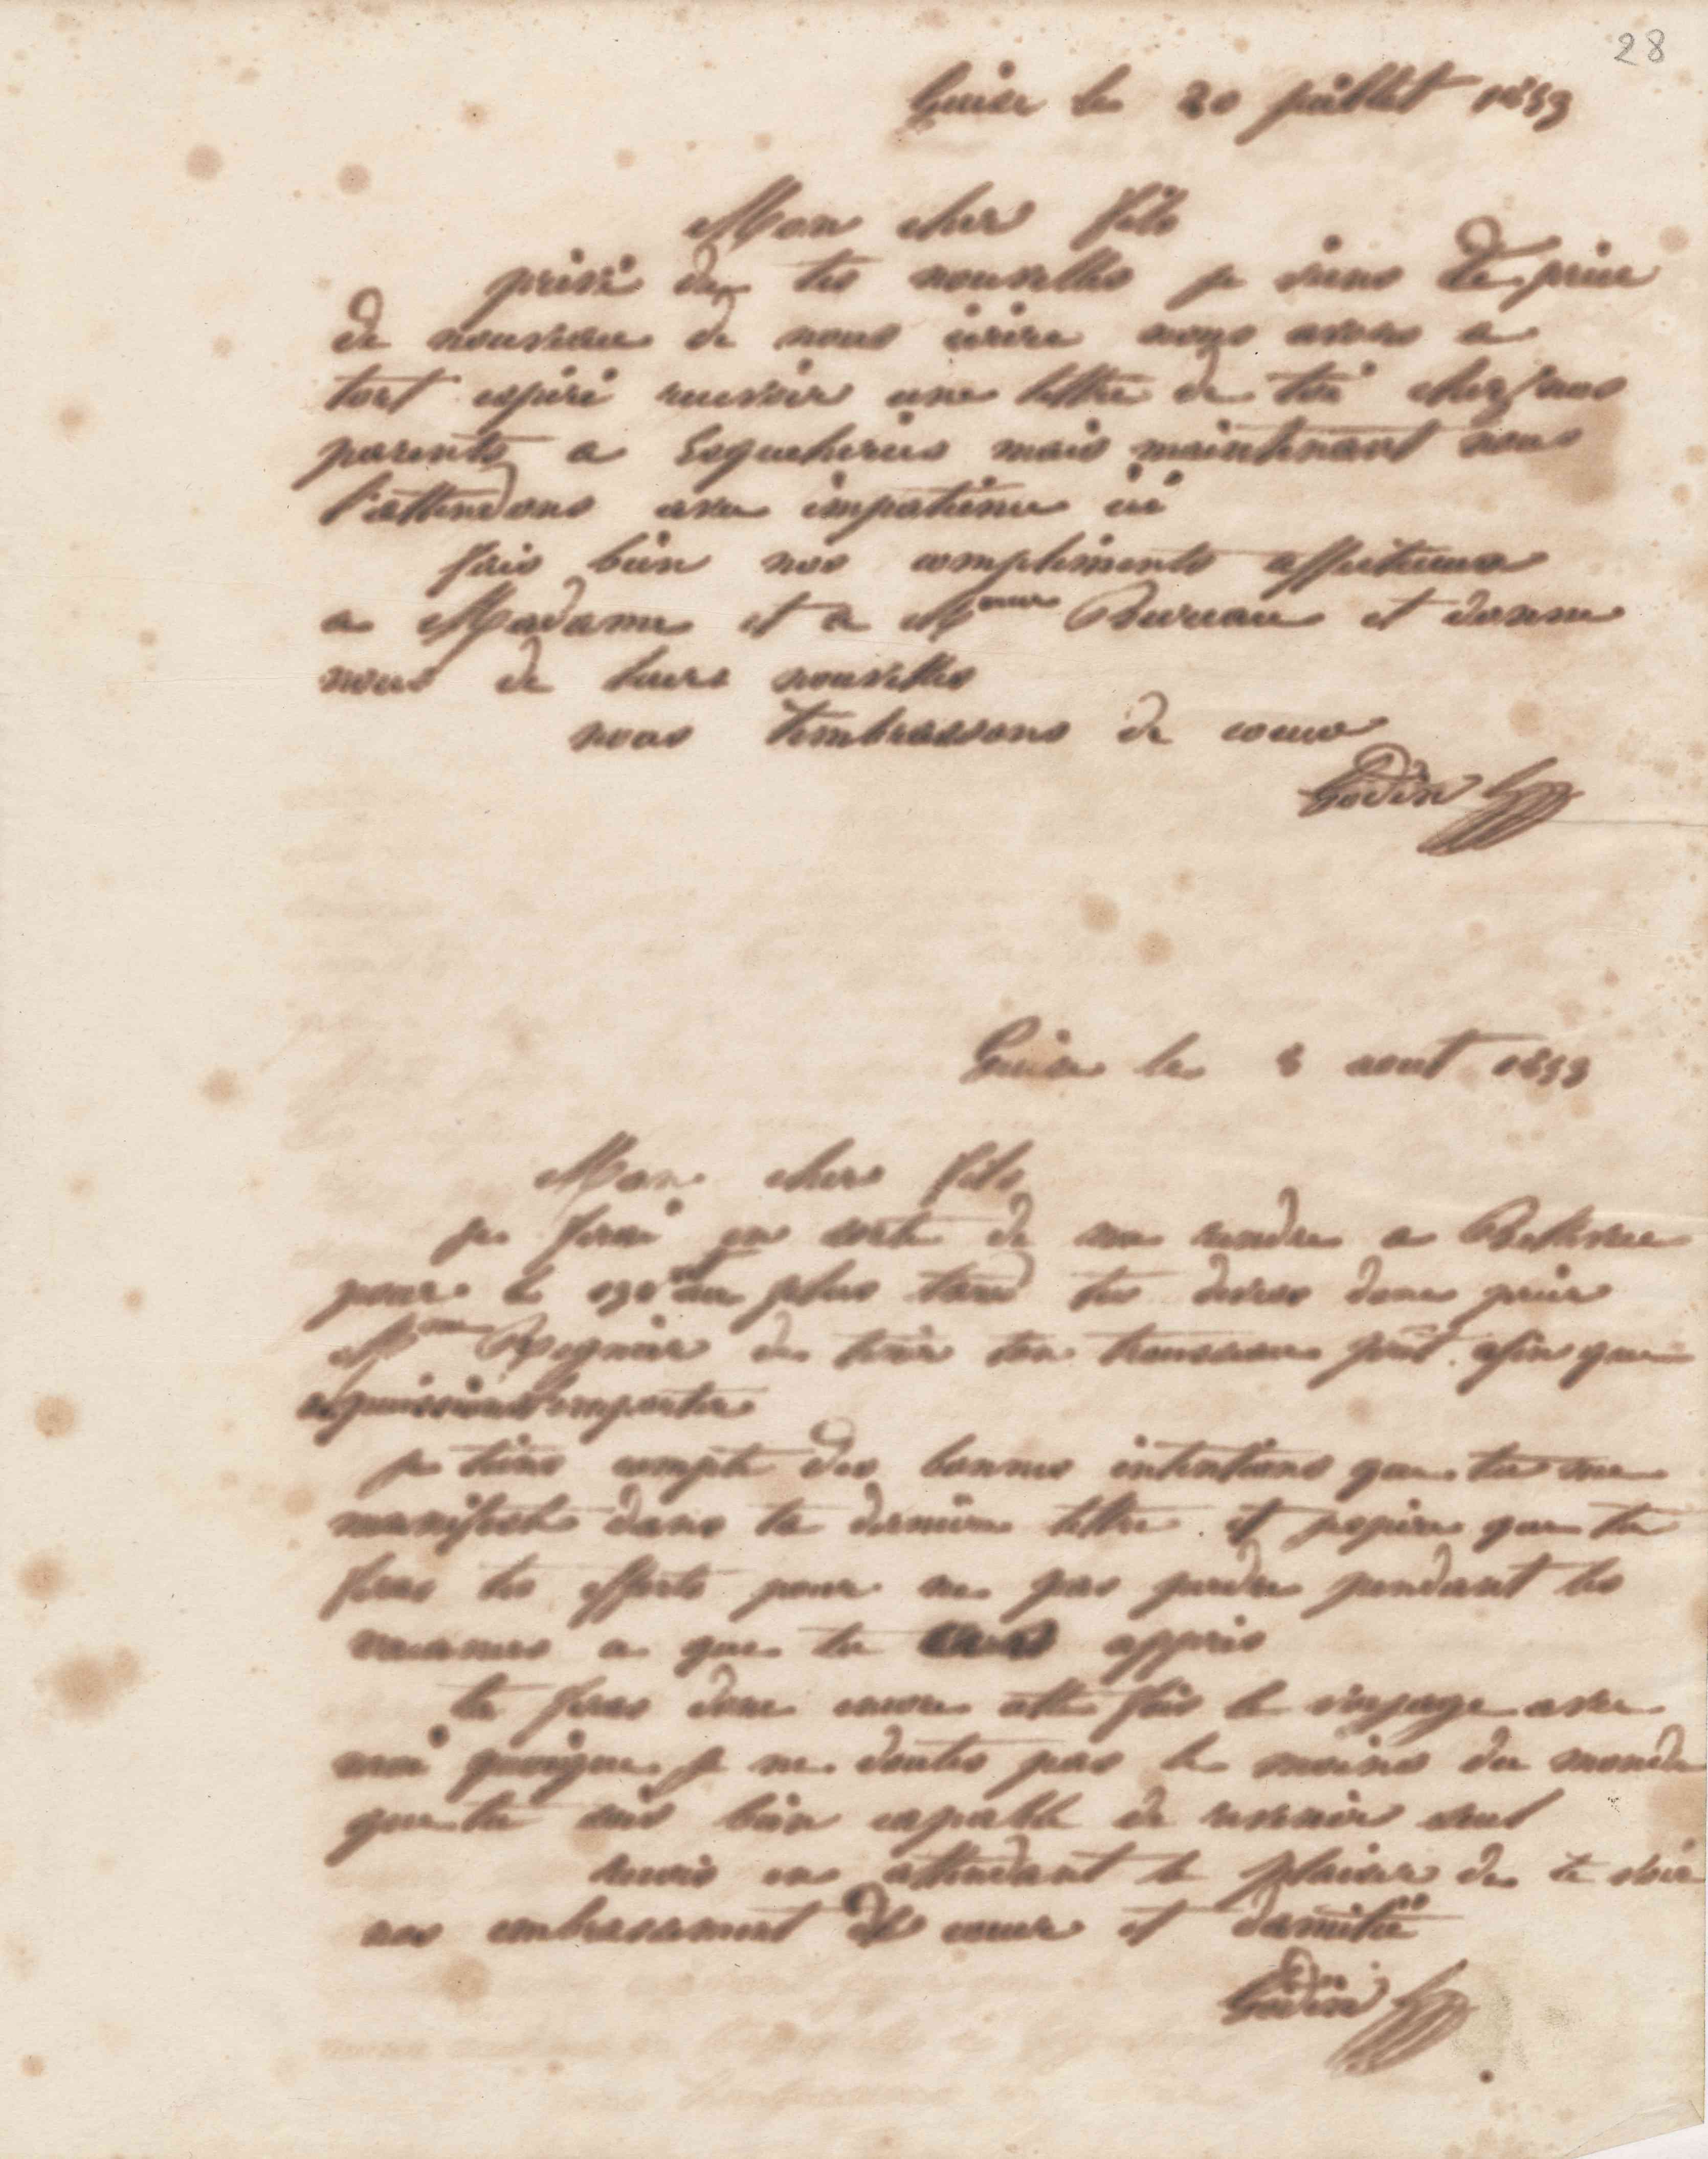 28
Guise le 20 juillet 1853
Mon cher fils
privé de tes nouvelles je viens te prier
de nouveau de nous écrire nous avons a
tort espéré recevoir une lettre de toi chez nos
parents a Esquehéries mais maintenant nous
l'attendons avec impatience ici
fais bien nos compliments affectueux
a Madame et a Mr Bureau et donne
nous de leurs nouvelles
nous t'embrassons de coeur
Godin
Guise le 8 aout 1853
Mon cher fils
je ferai en sorte de me rendre a Bellevue
pour le au plus tard tu devras donc prier
Mme de tenir ton trousseau prêt afin que
puissions l'emporter
je tiens compte des bonnes intentions que tu me
manifeste dans ta dernière lettre et j'espère que tu
feras tes efforts pour ne pas perdre pendant les
vacances ce que tu appris
tu feras donc encore cette fois le voyage avec
moi quoique je ne doutes pas le moins du monde
que tu sois bien capable de revenir seul
reçois en attendant le plaisir de te voir
nos embrassement de coeur et d'amitié
Godin